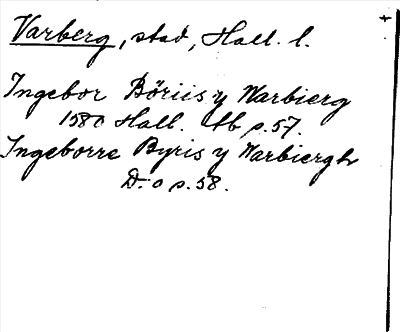 Varberg, stad, Hall. l.
Ingebor Böriis y Warbierg
1580 Hall. tb p. 57.
Ingeborre Byris y Warbiergh
D:o p. 58.